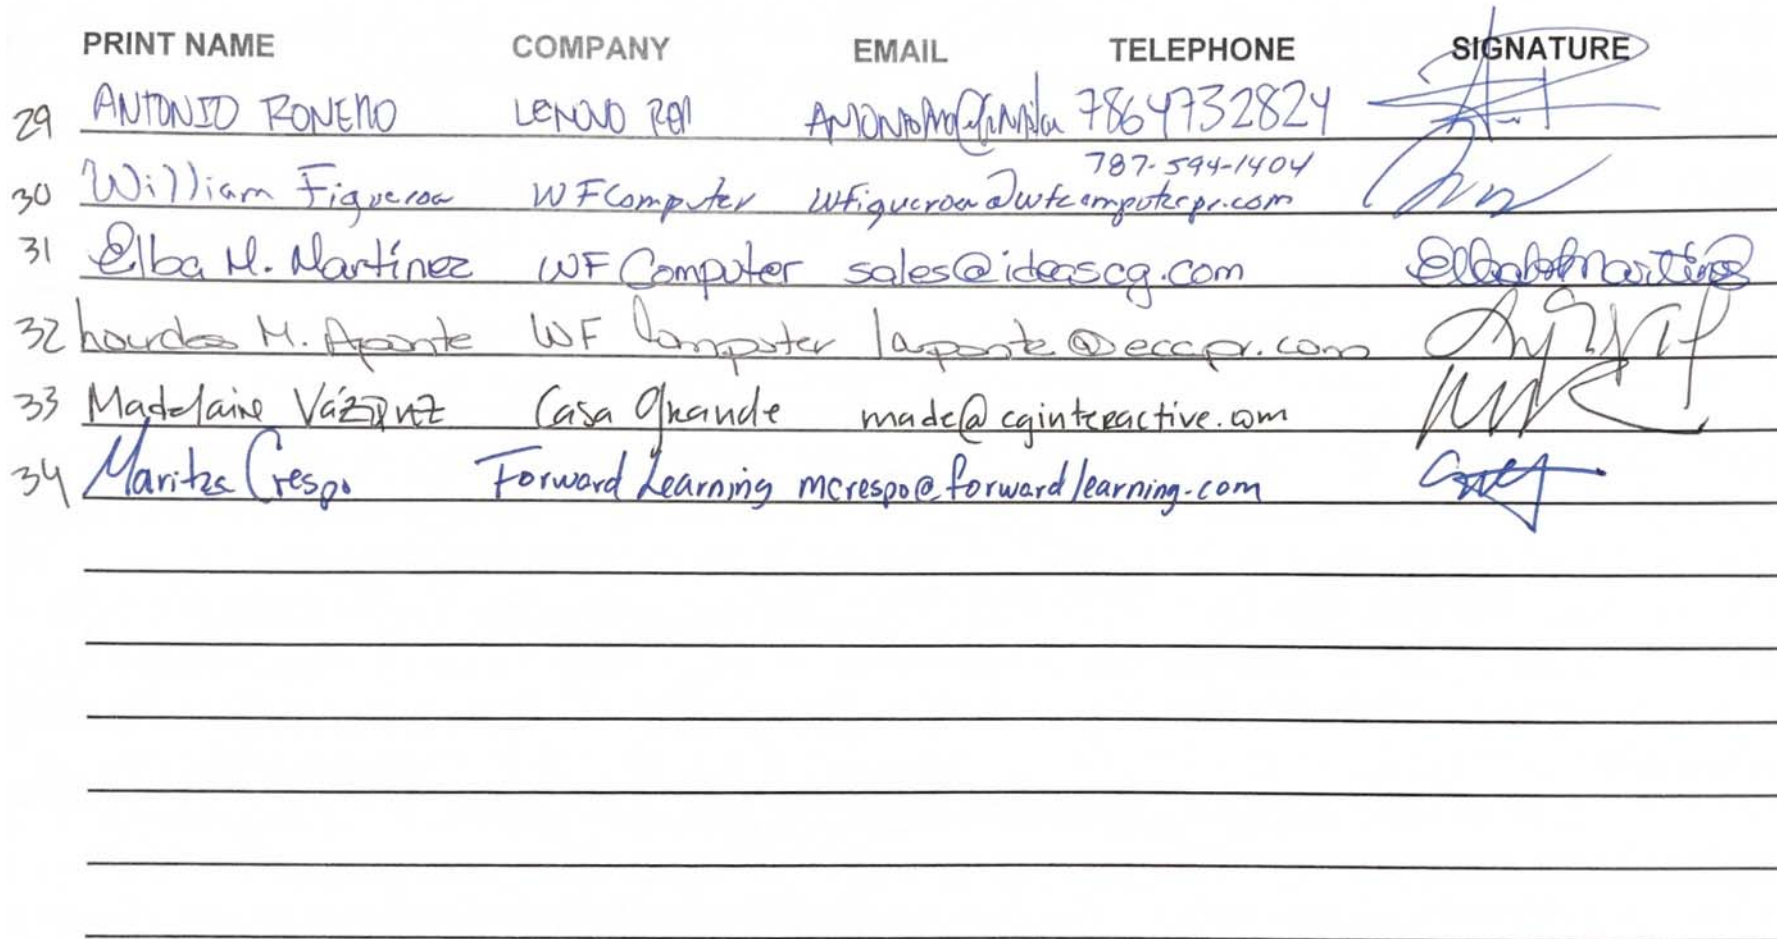 PRINT NAME COMPANY EMAIL TELEPHONE SIGNATURE
29 ANTONIO ROMERO LENOVO 7864732824
30 William Figueroa WFComputer wfigueroa@wfcomputerpr.com 787-594-1404
31 Elba M. Martínez WF Computer sales@ideascg.com
32 Lourdes M. Aponte WF Computer laponte@eccpr.com
33 Madelaine Vázquez Casa Grande made@cginteractive.com
34 Maritza Crespo Forward Learning mcrespo@forwardlearning.com